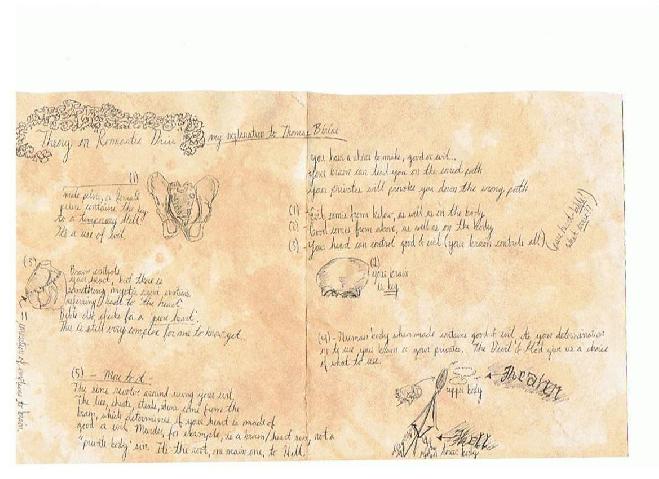 Theory on Romantic Drive
my explanation to Thomas
you have a choice to make, good or evil...
your brain can lead you on the sacred path
your privates will provoke you down the wrong path
(1)
male pelvis, or female
pelvis contains the key
to a temporary thrill
It's a use of lust
(1) - Evil comes from below, as well as on the body
(2) - Good comes from above, as well as on the body
(3) - Your heart can control good & evil (your brain controls all)
(2)
your brain
is key
(3)
Brain controls
your heart, but there is
something mystic upon emotions
referring itself to "the heart"
Bible also speaks for a "pure heart".
This is still very complex for me to know yet.
= connection of emotions of brain.
(4) - Human body when made contains good & evil its your determination
or to use you brain or your privates. The Devil & God give us a choice
of what to use.
(5) -
The sins revolve around using your evil,
The lies, cheats, steals, show come from the
brain, which determines if your heart is made of
good or evil. Murder, for example, is a brain/heart sin, not a
"private body" sin. its the root, on main one, to Hell.
upper body
Heaven
lower body